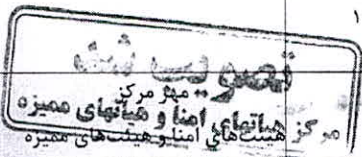 تصویب شد
مهر مرکز
مرکز هیئتهای امنا و هیأتهای ممیزه
هیئت‌های امنا و هیئت‌های ممیزه